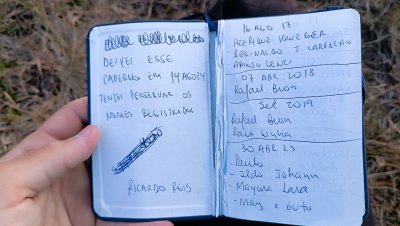 DEIXEI ESSE
CADERNO EM 14AGO24
TENTEI PERSERVAR OS
NOMES REGISTRADOS
RICARDO REIS
16 AGO 17
HENRIQUE KRUEGER
REGINALDO J CARNEIRO
AFONSO LENCI
07 ABR 2018
Rafael Buon
Set 2019
Rafael Buon
Laís Cunha
30 ABR 23
Paulo
- Ildo Johann
- Mayara Lara
- May e Gutu